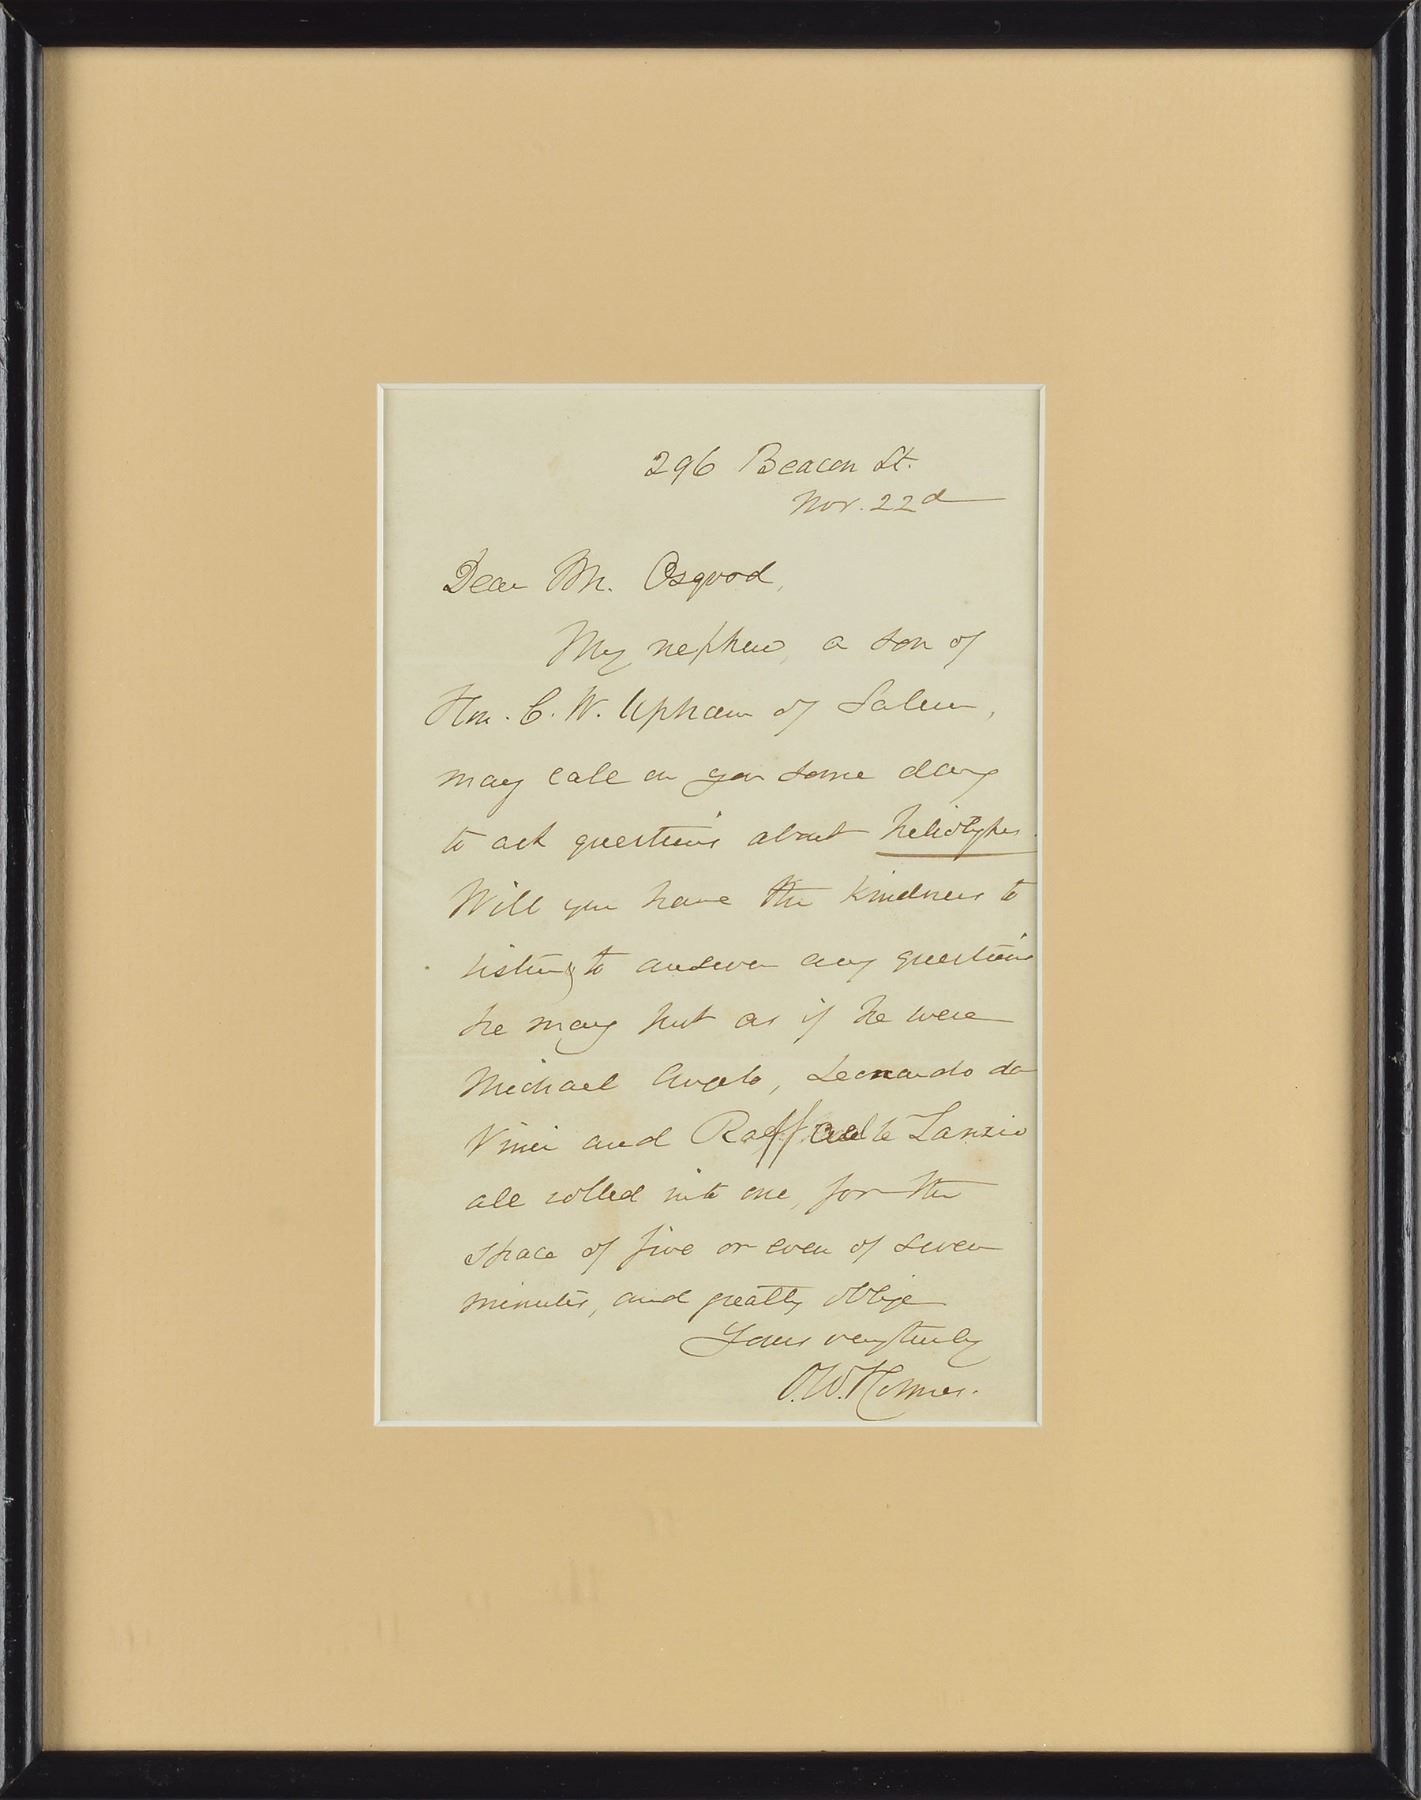 296 Beacon St.
Nov. 22d
Dear Mr. Osgood,
My nephew, a son of
Hon. C. W. Upham of Salem,
may call on you some day
to ask questions about heliotypes.
Will you have the kindness to
listen, to answer any questions
he may put as if he were
Michael Angelo, Leonardo da
Vinci and Raffaelle Sanzio
all rolled into one, for the
space of five or even of seven
minutes, and greatly oblige
Yours very truly
O. W. Holmes.